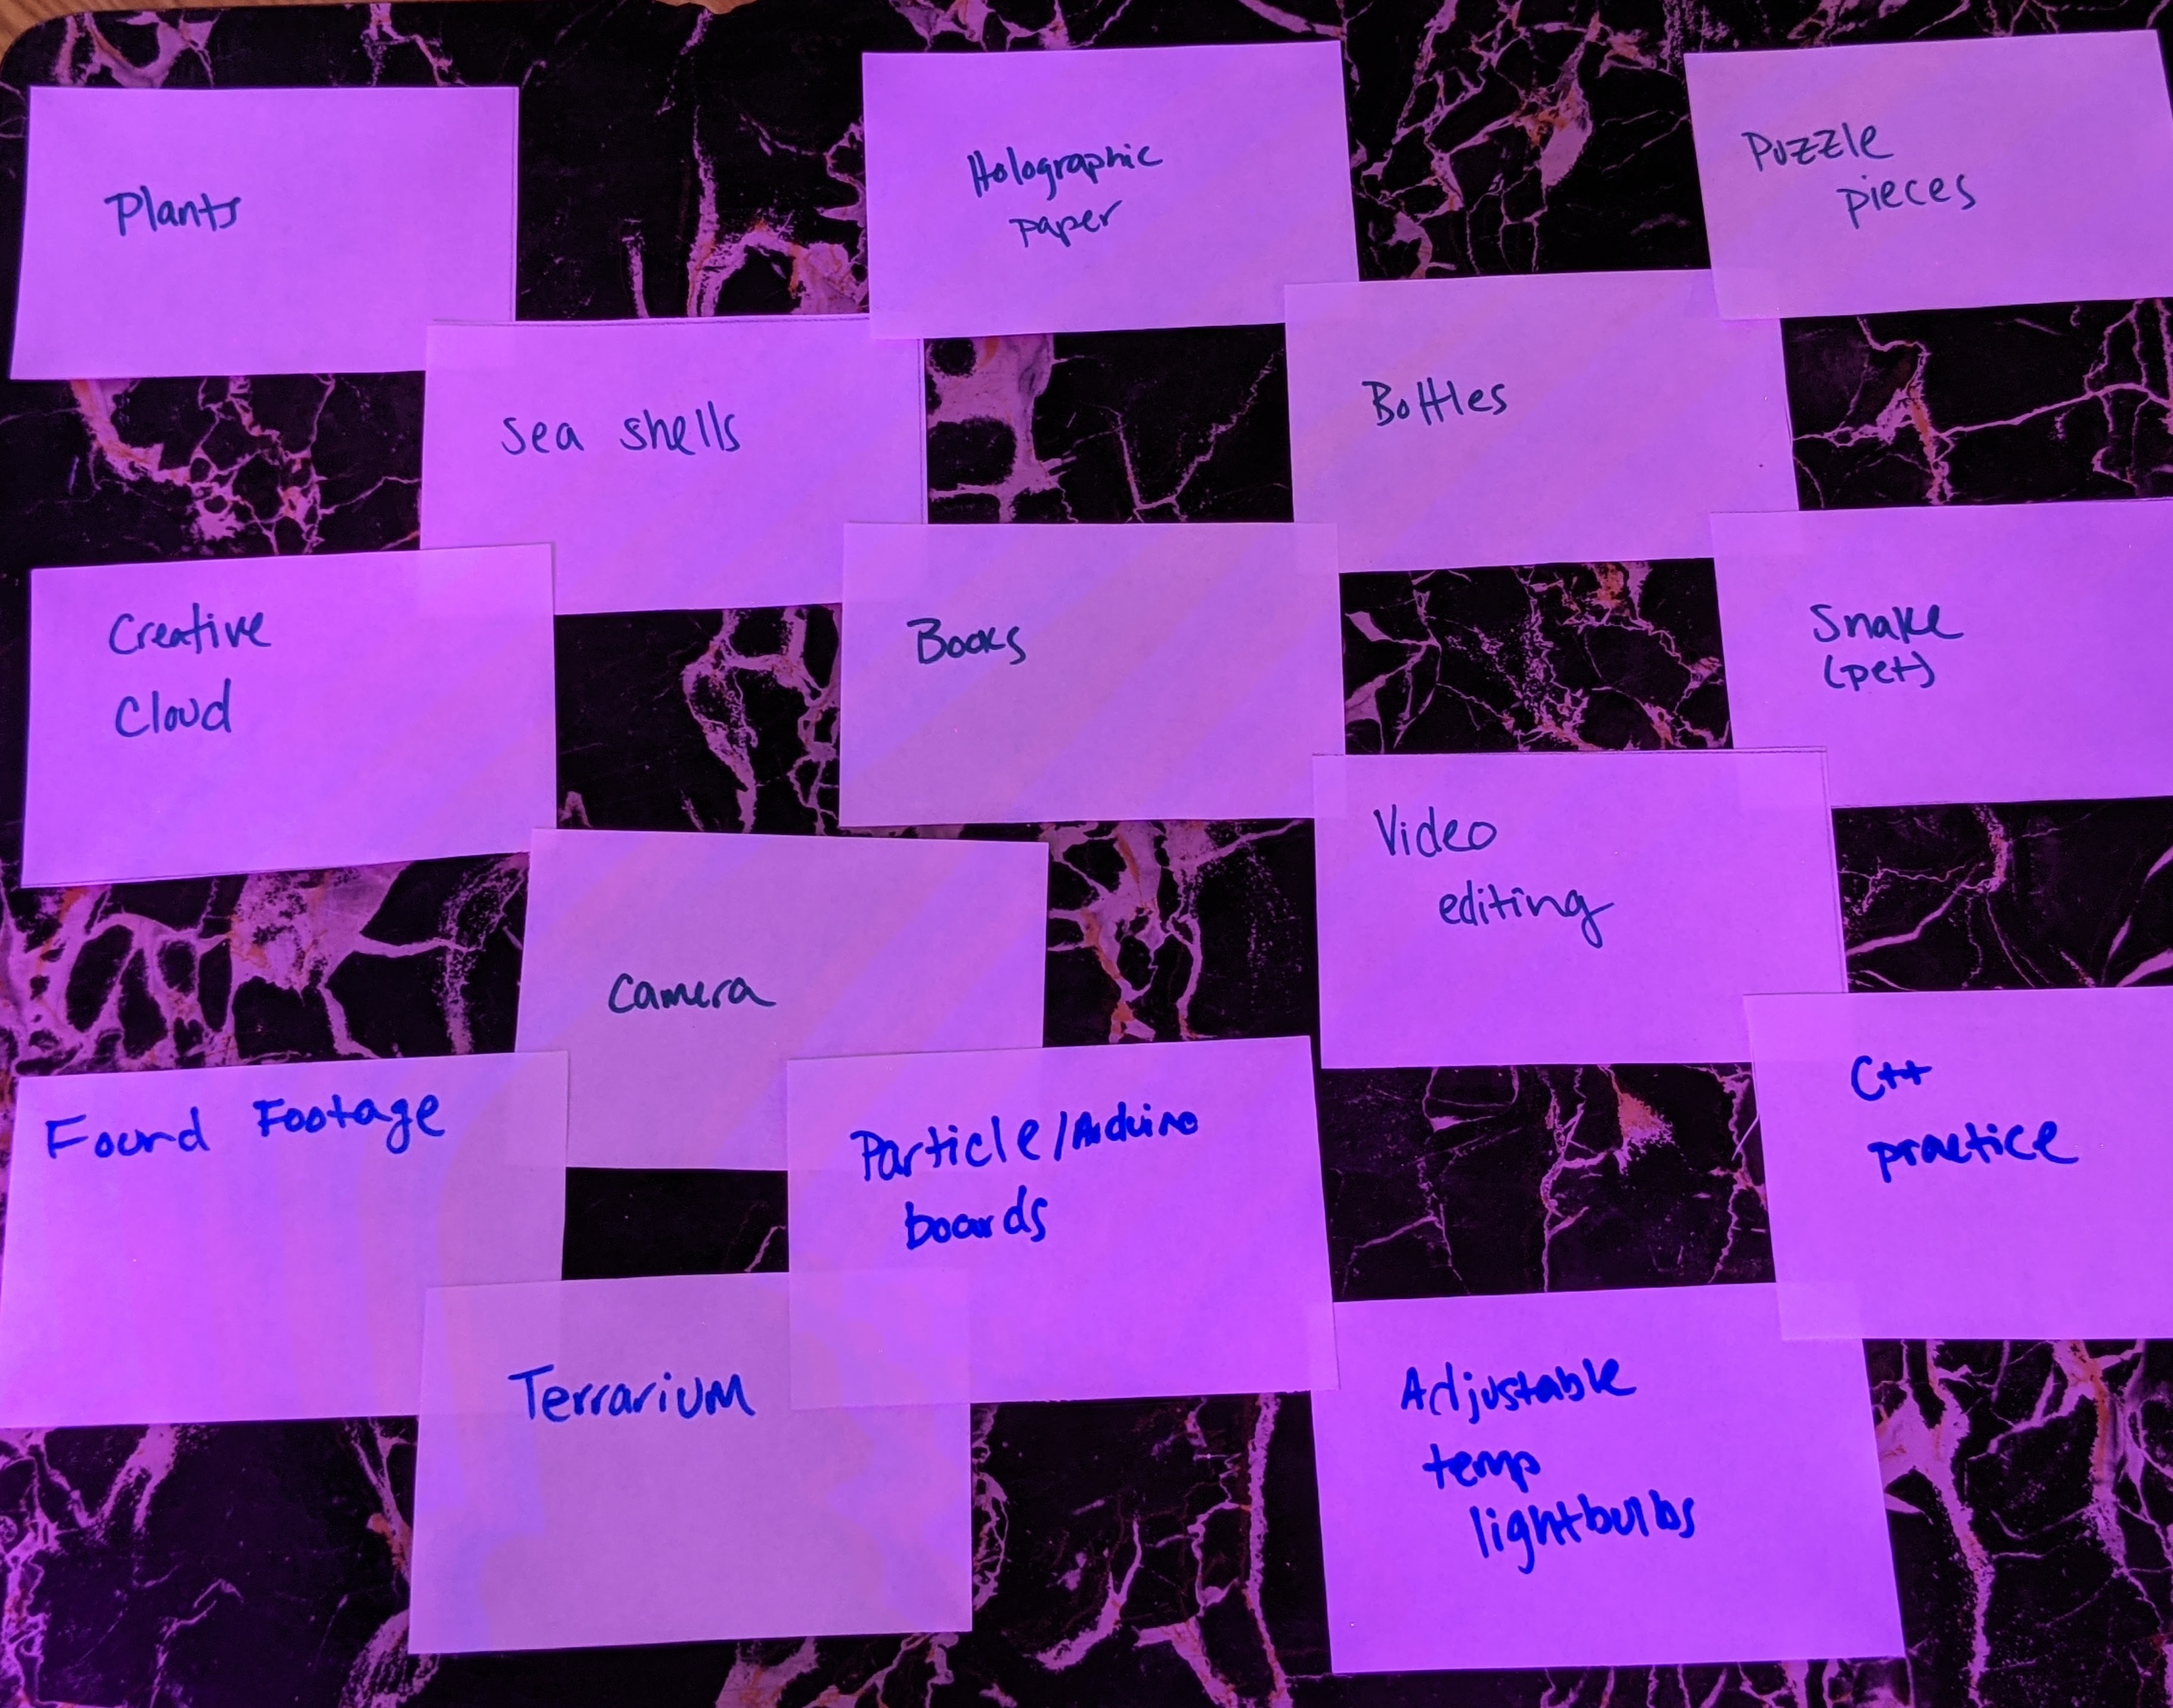 Plants
Holographic
paper
Puzzle
pieces
Sea shells
Bottles
Creative
Cloud
Books
Snake
(pet)
Camera
Video
editing
Found Footage
Particle/Arduino
boards
C++
practice
Terrarium
Adjustable
temp
lightbulbs